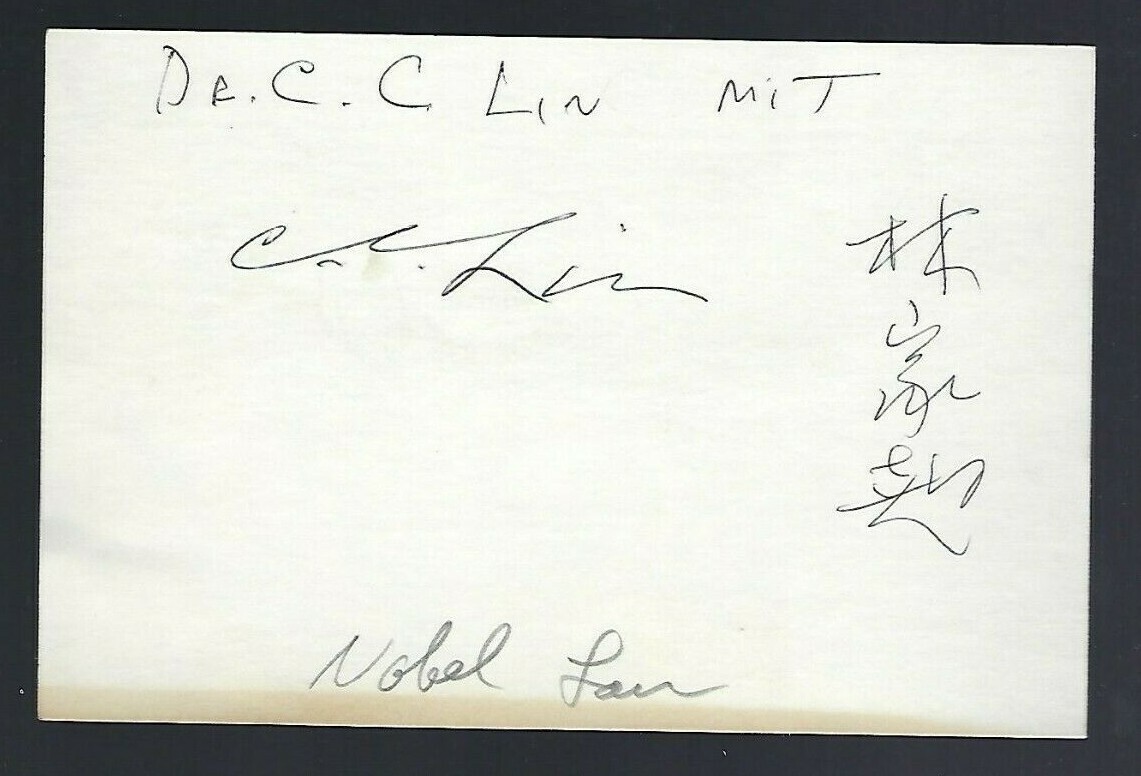 Dr. C. C Lin MIT
C. C. Lin
林家翘
Nobel Laur